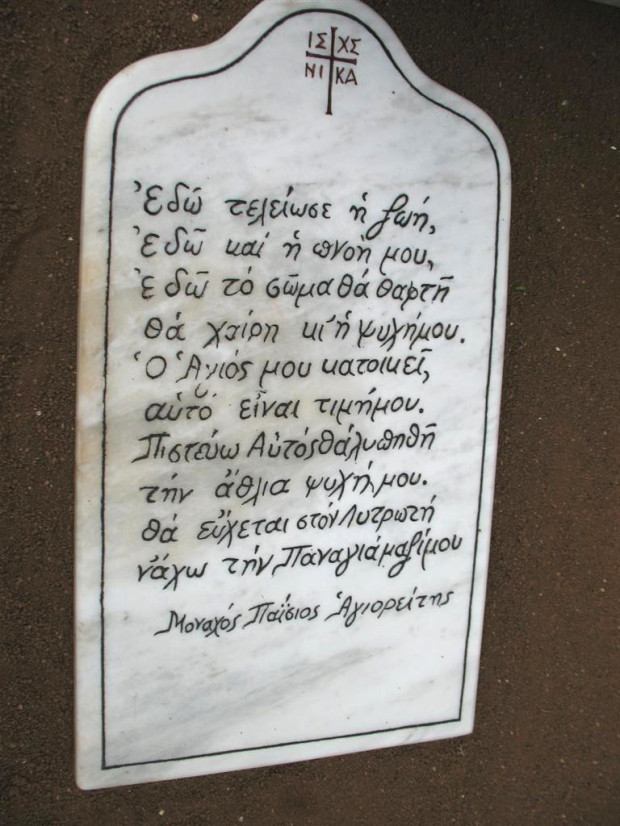 ΙΣ ΧΣ
ΝΙ ΚΑ
Ἐδῶ τελείωσε ἡ ζωή,
Ἐδῶ καί ἡ πνοή μου,
Ἐδῶ τό σῶμα θά θαφτῆ
θά χαίρη κι᾿ ἡ ψυχή μου.
Ὁ Ἅγιός μου κατοικεῖ,
αὐτό εἶναι τιμή μου.
Πιστεύω Αὐτός θά λυπηθῆ
τήν ἄθλια ψυχή μου.
θά εὔχεται στόν Λυτρωτή
νἄχω τήν Παναγιά μαζί μου
Μοναχός Παΐσιος Ἁγιορείτης